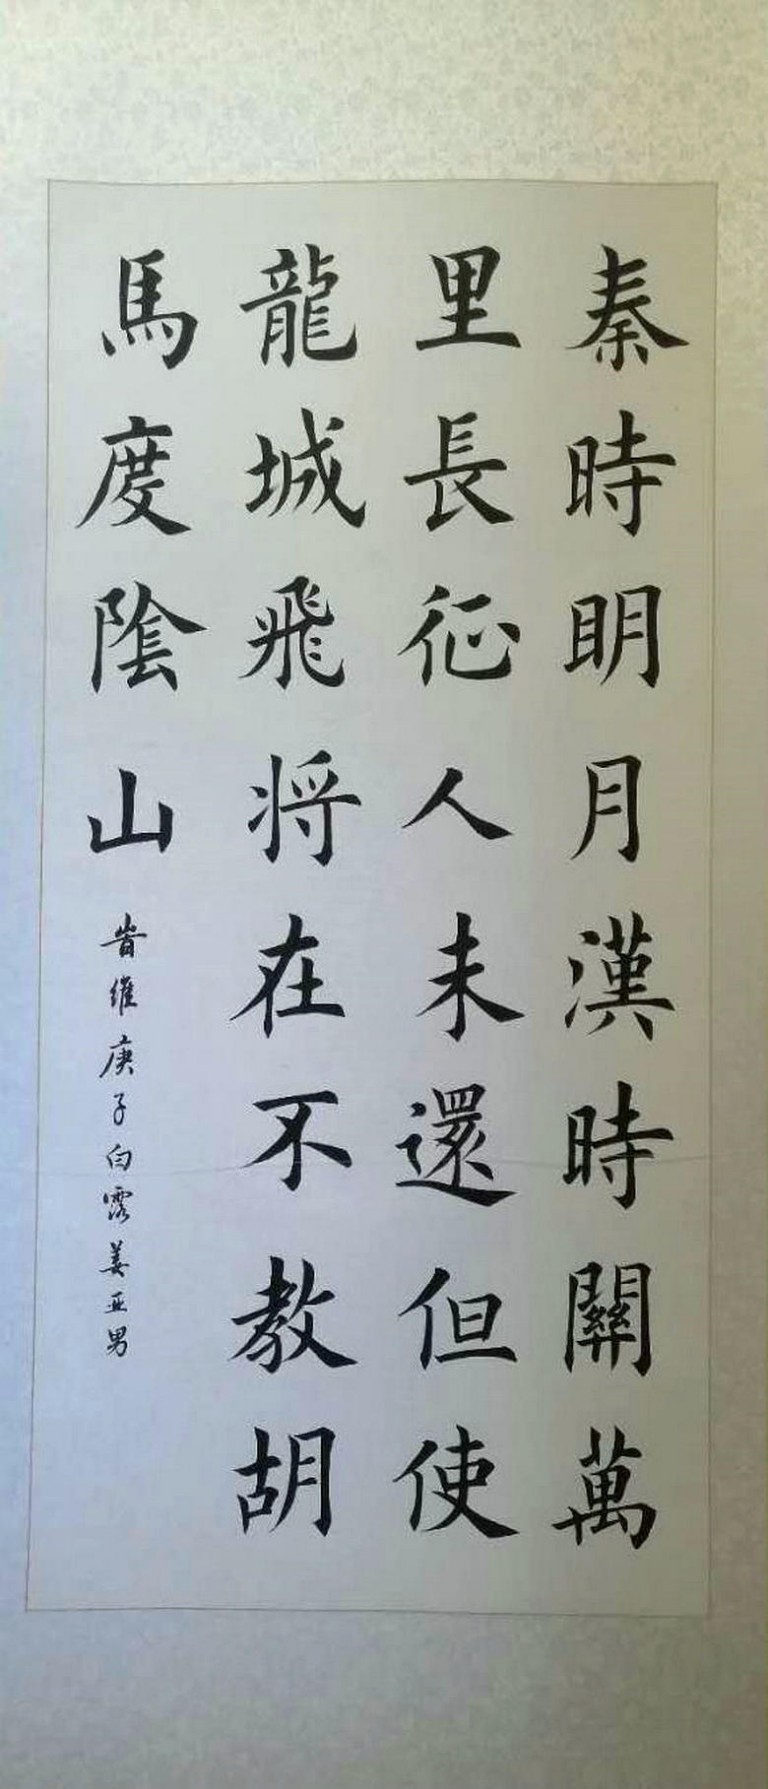 秦時明月漢時關萬
里長征人未還但使
龍城飛將在不教胡
馬度陰山
旹維庚子白露姜亚男